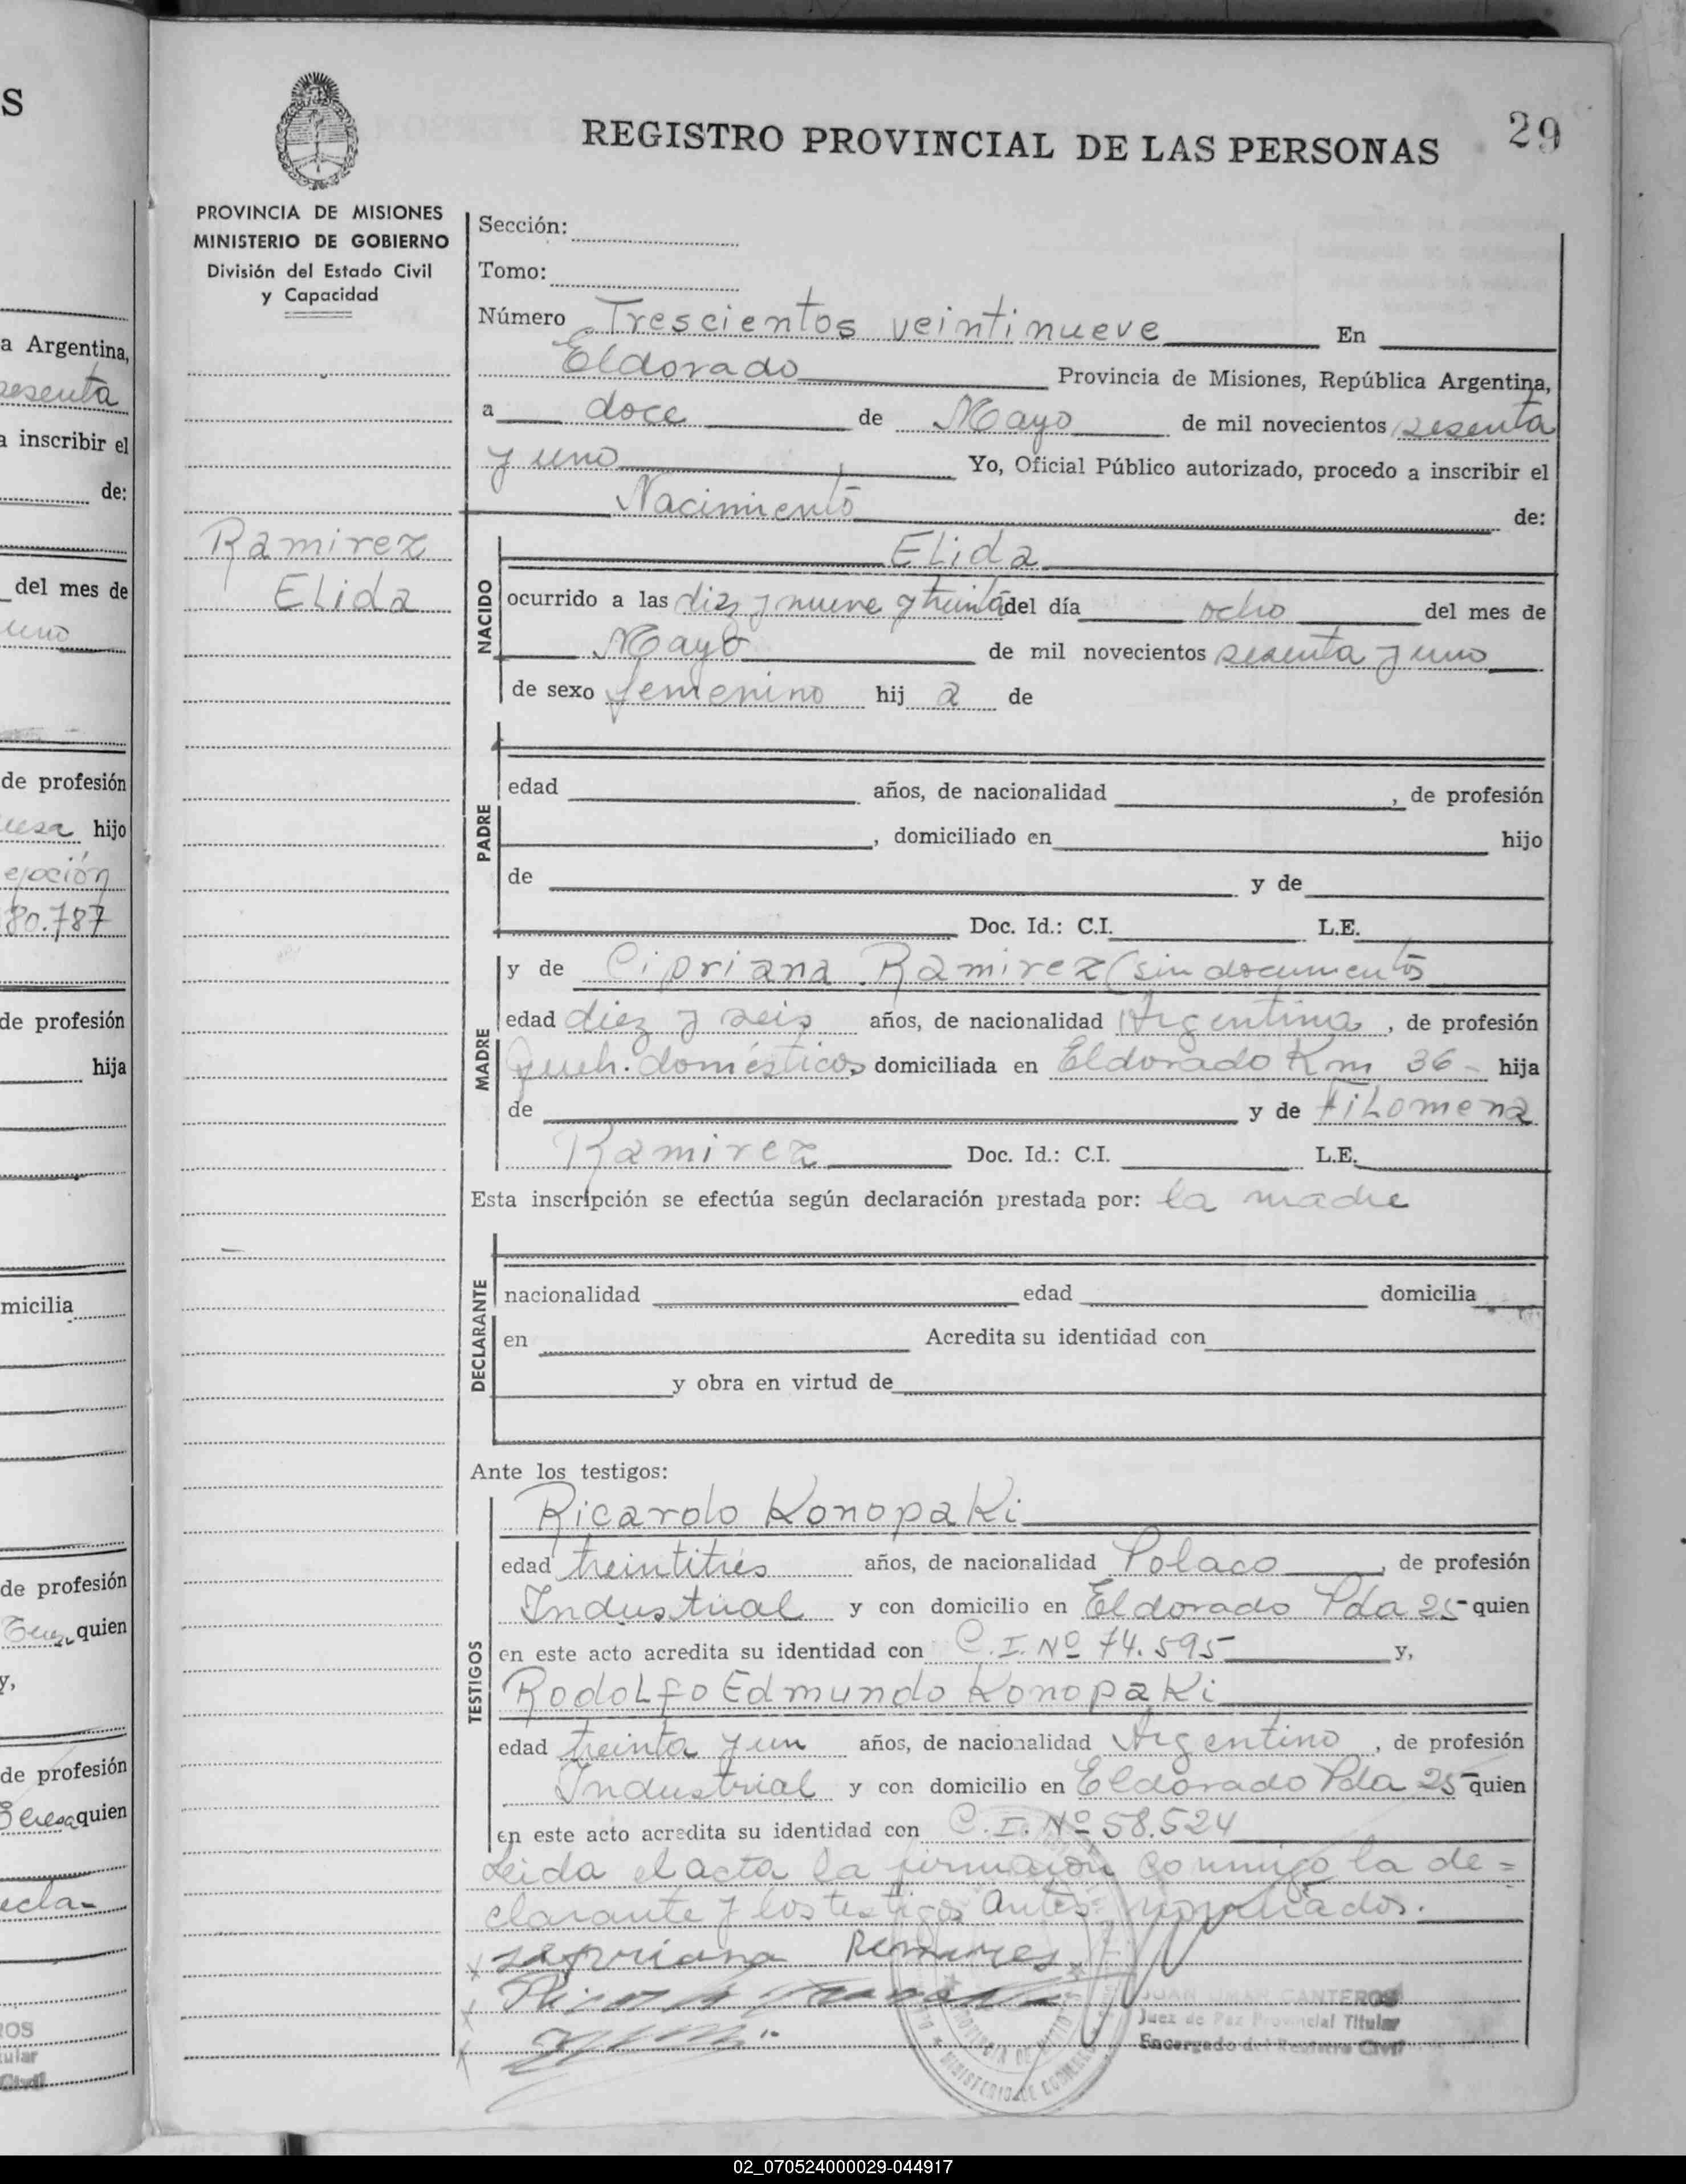 S
a Argentina,
esenta
a inscribir el
de:
del mes de
uno
de profesión
hijo
epción
80.787
de profesión
hija
micilia
de profesión
quien
y,
de profesión
quien
ecla-
29
REGISTRO PROVINCIAL DE LAS PERSONAS
PROVINCIA DE MISIONES
MINISTERIO DE GOBIERNO
División del Estado Civil
y Capacidad
Ramirez
Elida
Sección:
Tomo:
Número Trescientos veintinueve En
Eldorado Provincia de Misiones, República Argentina,
a doce de Mayo de mil novecientos sesenta
y uno Yo, Oficial Público autorizado, procedo a inscribir el
Nacimiento de:
NACIDO
Elida
ocurrido a las diez y nueve y treinta del día ocho del mes de
Mayo de mil novecientos sesenta y uno
de sexo femenino hij a de
PADRE
edad años, de nacionalidad , de profesión
, domiciliado en hijo
de y de
Doc. Id.: C.I. L.E.
MADRE
y de Cipriana Ramirez (sin documentos
edad diez y seis años, de nacionalidad Argentina , de profesión
queh. domésticos domiciliada en Eldorado Km 36 - hija
de y de Filomena
Ramirez Doc. Id.: C.I. L.E.
Esta inscripción se efectúa según declaración prestada por: la madre
DECLARANTE
nacionalidad edad domicilia
en Acredita su identidad con
y obra en virtud de
Ante los testigos:
TESTIGOS
Ricardo Konopaki
edad treintitrés años, de nacionalidad Polaco , de profesión
Industrial y con domicilio en Eldorado Pda 25- quien
en este acto acredita su identidad con C. I. Nº 74.595 y,
Rodolfo Edmundo Konopaki
edad treinta y un años, de nacionalidad Argentino , de profesión
Industrial y con domicilio en Eldorado Pda 25- quien
en este acto acredita su identidad con C. I. Nº 58.524
Leida el acta la firmaron conmigo la de=
clarante y los testigos antes nombrados.
x sepriana Remires
JUAN OMAR CANTEROS
Juez de Paz Provincial Titular
Encargado del Registro Civil
02_070524000029-044917